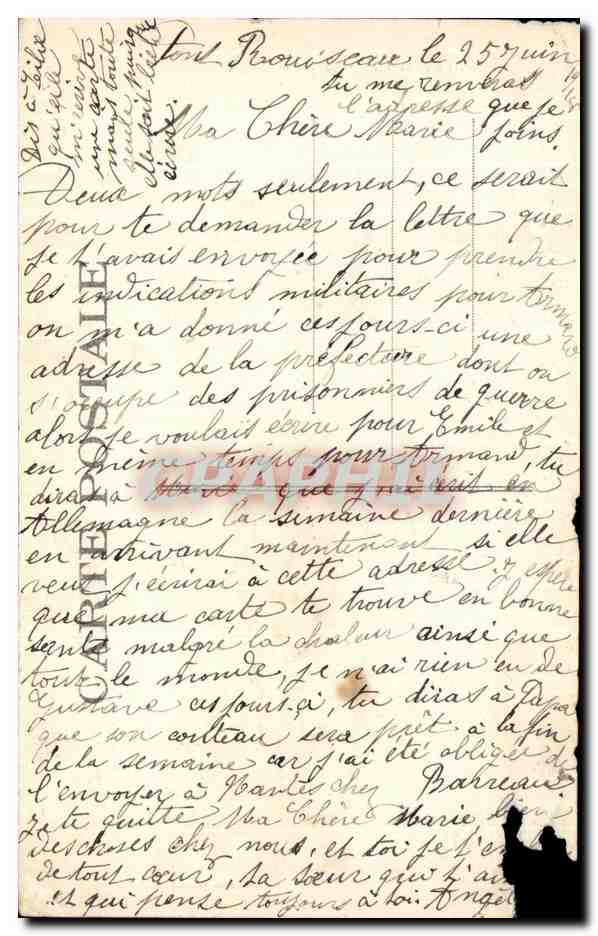 Pont Rousseau le 25 Juin
tu me renverras
l'adresse que je
joins.
Ma Chère Marie
Deux mots seulement, ce serait
pour te demander la lettre que
je t'avais envoyée pour prendre
les indications militaires pour Armand
on m'a donné ces jours-ci une
adresse de la préfecture dont on
s'occupe des prisonniers de guerre
alors je voulais écrire pour Emile et
en même temps pour Armand, tu
diras à Marie que j'ai écrit en
Allemagne la semaine dernière
en arrivant maintenant si elle
veut j'écrirai à cette adresse. J'espère
que ma carte te trouve en bonne
santé malgré la chaleur ainsi que
tout le monde, je n'ai rien eu de
Gustave ces jours-ci, tu diras à Papa
que son couteau sera prêt à la fin
de la semaine car j'ai été obligée de
l'envoyer à Nantes chez Barreau
je te quitte Ma Chère Marie bien
des choses chez nous, et toi je t'em
de tout cœur, ta sœur qui t'ai
et qui pense toujours à toi. Angèl
Dis à
qu'elle
m'écrive
une carte
mais toute
seule
elle soit
CARTE POSTALE
CPARAMA